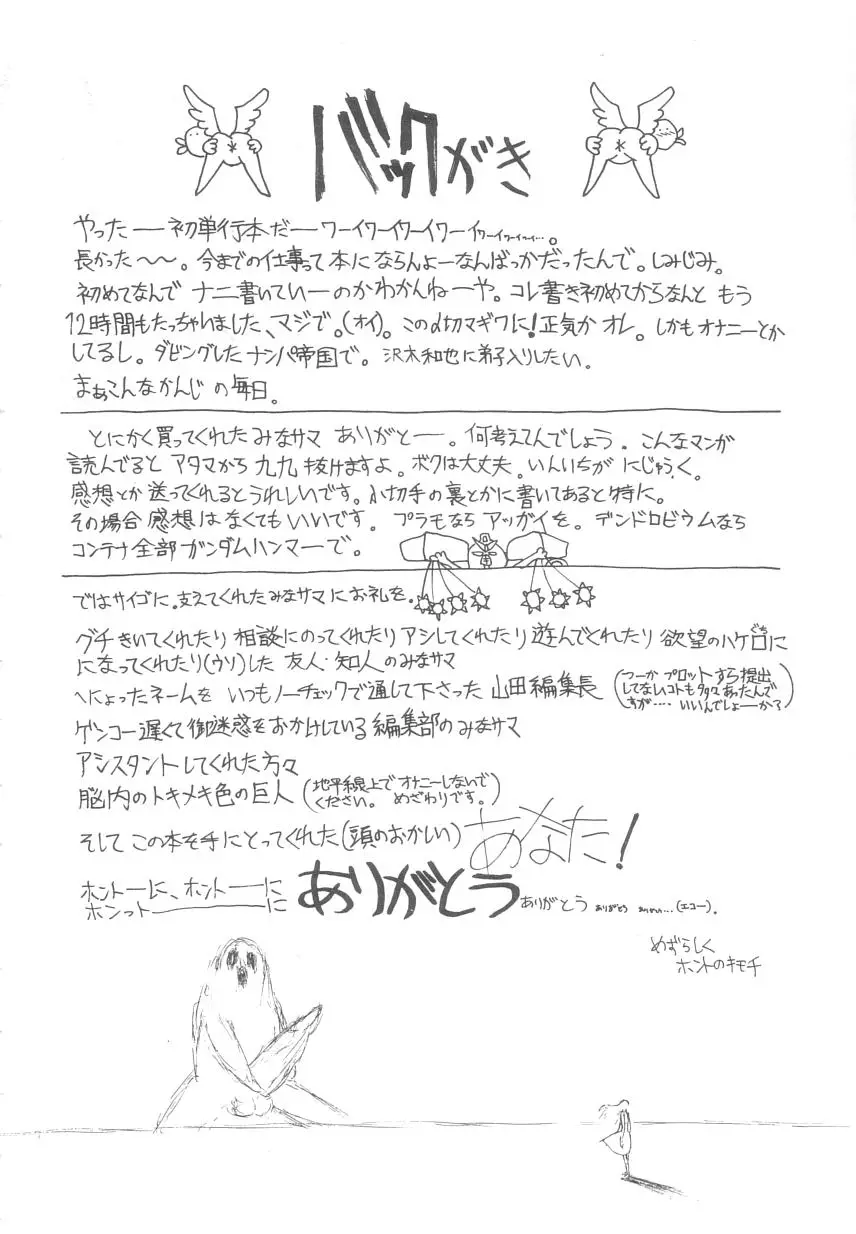 バックがき
やったーー初単行本だーーワーイワーイワーイワーイワーイワーイワーイ…。
長かった〜〜。今までの仕事って本にならんよーなんばっかだったんで。しみじみ。
初めてなんで ナニ書いていーのかわかんねーや。コレ書き初めてからなんと もう
12時間もたっちゃいました、マジで。(オイ)。この〆切マギワに!正気か オレ。しかもオナニーとか
してるし。ダビングした ナンパ帝国で。沢木和也に弟子入りしたい。
まぁこんなかんじの毎日。
とにかく買ってくれた みなサマ ありがとーー。何考えてんでしょう。こんなマンガ
読んでると アタマから 九九 抜けますよ。ボクは大丈夫。いんいちが にじゅうく。
感想とか 送ってくれるとうれしいです。小切手の裏とかに書いてあると特に。
その場合 感想は なくてもいいです。 プラモなら アッガイを。デンドロビウムなら
コンテナ全部ガンダムハンマーで。
ではサイゴに。支えてくれたみなサマにお礼を。
グチきいてくれたり 相談にのってくれたり アシしてくれたり 遊んでくれたり 欲望のハケ口に
になってくれたり(ウソ)した 友人・知人のみなサマ
へにょったネームを いつもノーチェックで通して下さった 山田編集長 (つーか プロットすら提出
してないコトも多々あったんで
すが‥‥いいんでしょーか?)
ゲンコー遅くて御迷惑をおかけしている編集部のみなサマ
アシスタントしてくれた方々
脳内のトキメキ色の巨人 (地平線上で オナニーしないで
ください。 めざわりです。)
そして この本を手にとってくれた(頭のおかしい) あなた!
ホントーに、ホントーーに
ホンットーーーーーーに ありがとう ありがとう ありがとう ありがとう…(エコー)。
めずらしく
ホントのキモチ